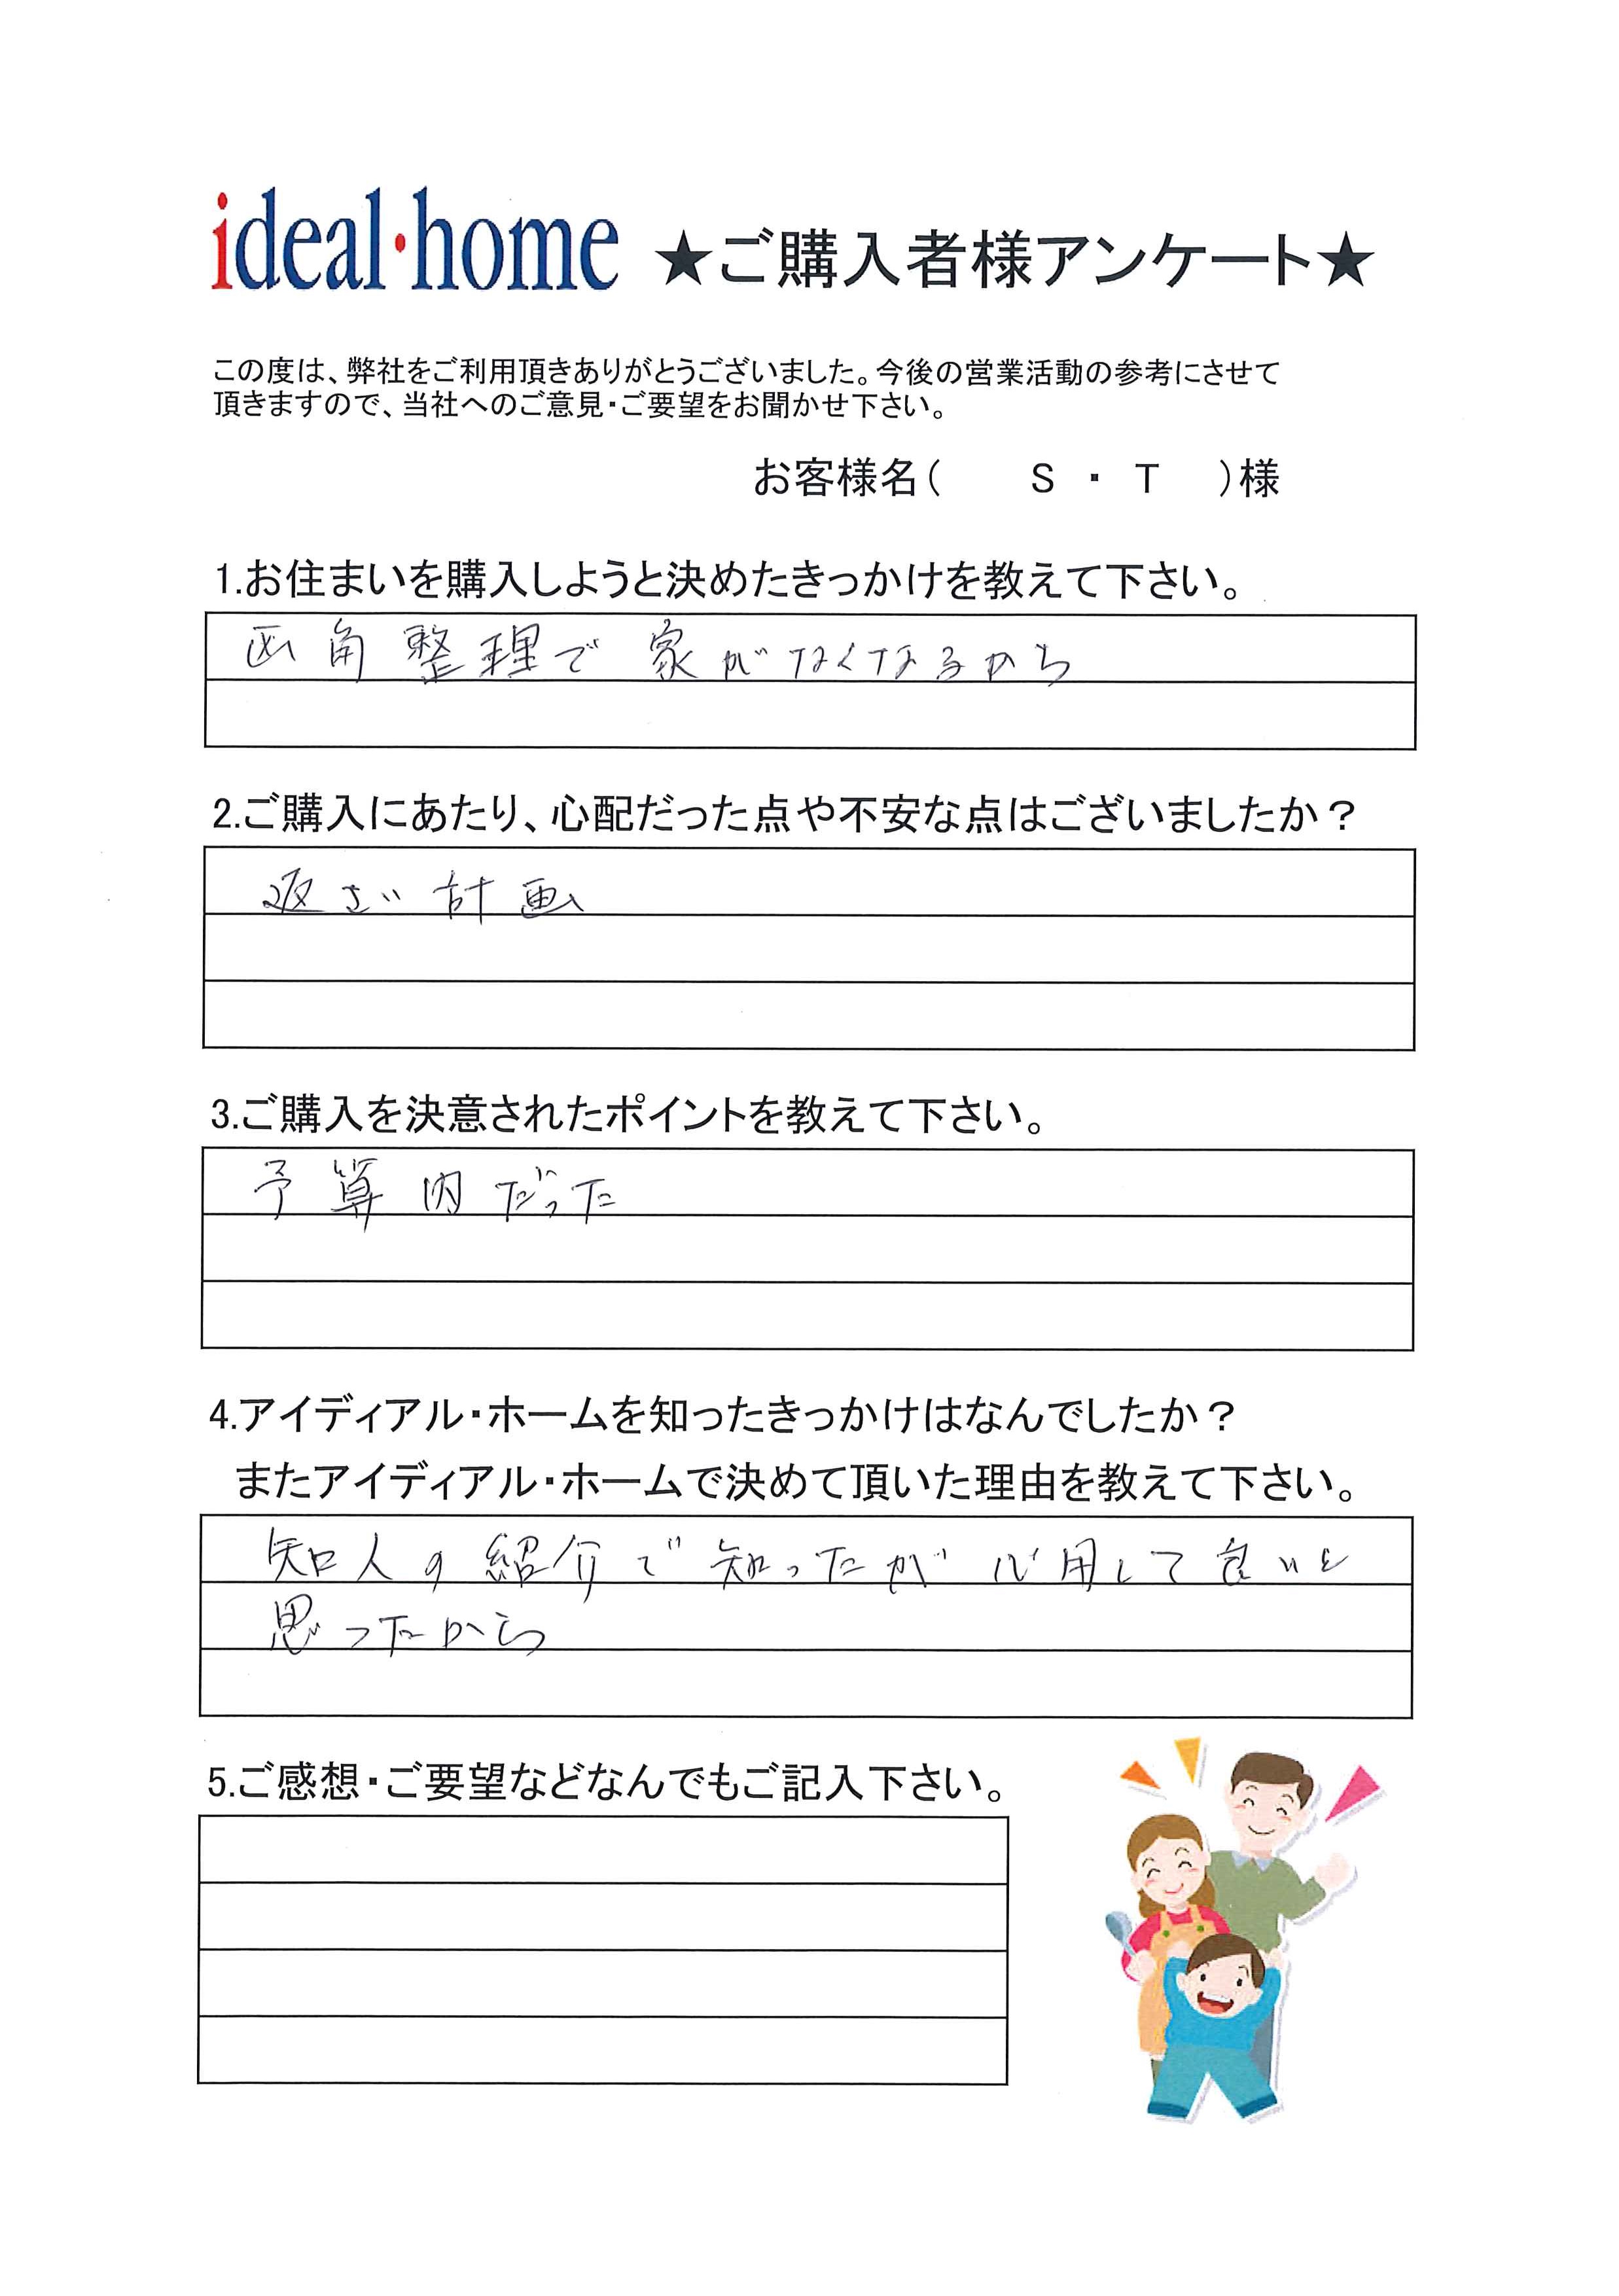 ideal・home ★ご購入者様アンケート★
この度は、弊社をご利用頂きありがとうございました。今後の営業活動の参考にさせて
頂きますので、当社へのご意見・ご要望をお聞かせ下さい。
お客様名( S ・ T )様
1.お住まいを購入しようと決めたきっかけを教えて下さい。
区角整理で家がなくなるから
2.ご購入にあたり、心配だった点や不安な点はございましたか？
返さい計画
3.ご購入を決意されたポイントを教えて下さい。
予算内だった
4.アイディアル・ホームを知ったきっかけはなんでしたか？
またアイディアル・ホームで決めて頂いた理由を教えて下さい。
知人の紹介で知ったが 用して良いと
思ったから
5.ご感想・ご要望などなんでもご記入下さい。